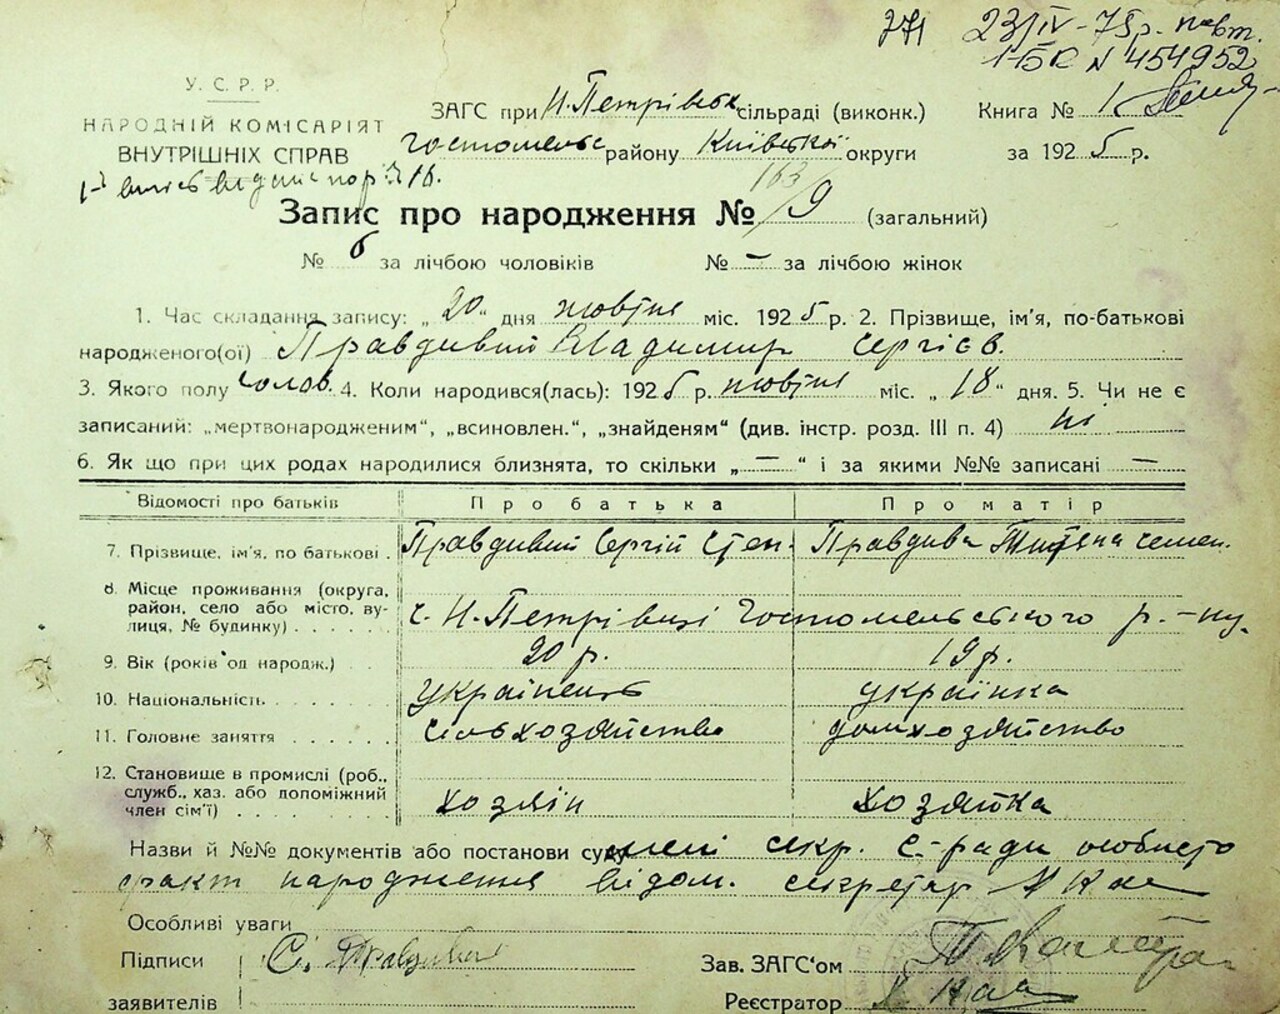 771 23/IV-75р. повт.
У. С. Р. Р. 1-БК N 454952
НАРОДНІЙ КОМІСАРІЯТ ЗАГС при Н.Петрівськ сільраді (виконк.) Книга № 1
ВНУТРІШНІХ СПРАВ Гостомельс району Київської округи за 1925 р.
163
Запис про народження № 9 (загальний)
№ 6 за лічбою чоловіків № — за лічбою жінок
1. Час складання запису: „20“ дня жовтня міс. 1925 р. 2. Прізвище, ім'я, по-батькові
народженого(ої) Правдивий Владимир Сергієв.
3. Якого полу чолов. 4. Коли народився(лась): 1925 р. жовтня міс. „18“ дня. 5. Чи не є
записаний: „мертвонародженим“, „всиновлен.“, „знайденям“ (див. інстр. розд. III п. 4) ні
6. Як що при цих родах народилися близнята, то скільки „—“ і за якими №№ записані —
Відомості про батьків Про батька Про матір
7. Прізвище, ім'я, по батькові . Правдивий Сергій Степ. Правдива Титяна Семен.
8. Місце проживання (округа,
район, село або місто, ву- с. Н.-Петрівці Гостомельського р.-ну.
лиця, № будинку) . . . . .
9. Вік (років од народж.) . . 20 р. 19 р.
10. Національність . . . . . . українець українка
11. Головне заняття . . . . . сільхозяйство домхозяйство
12. Становище в промислі (роб.,
служб., хаз. або допоміжний хозяїн хозяйка
член сім'ї) . . . . . . . .
Назви й №№ документів або постанови суду мені секр. с-ради особисто
факт народження відом. секретар
Особливі уваги
Підписи С. Правдивий Зав. ЗАГС'ом
заявителів Реєстратор